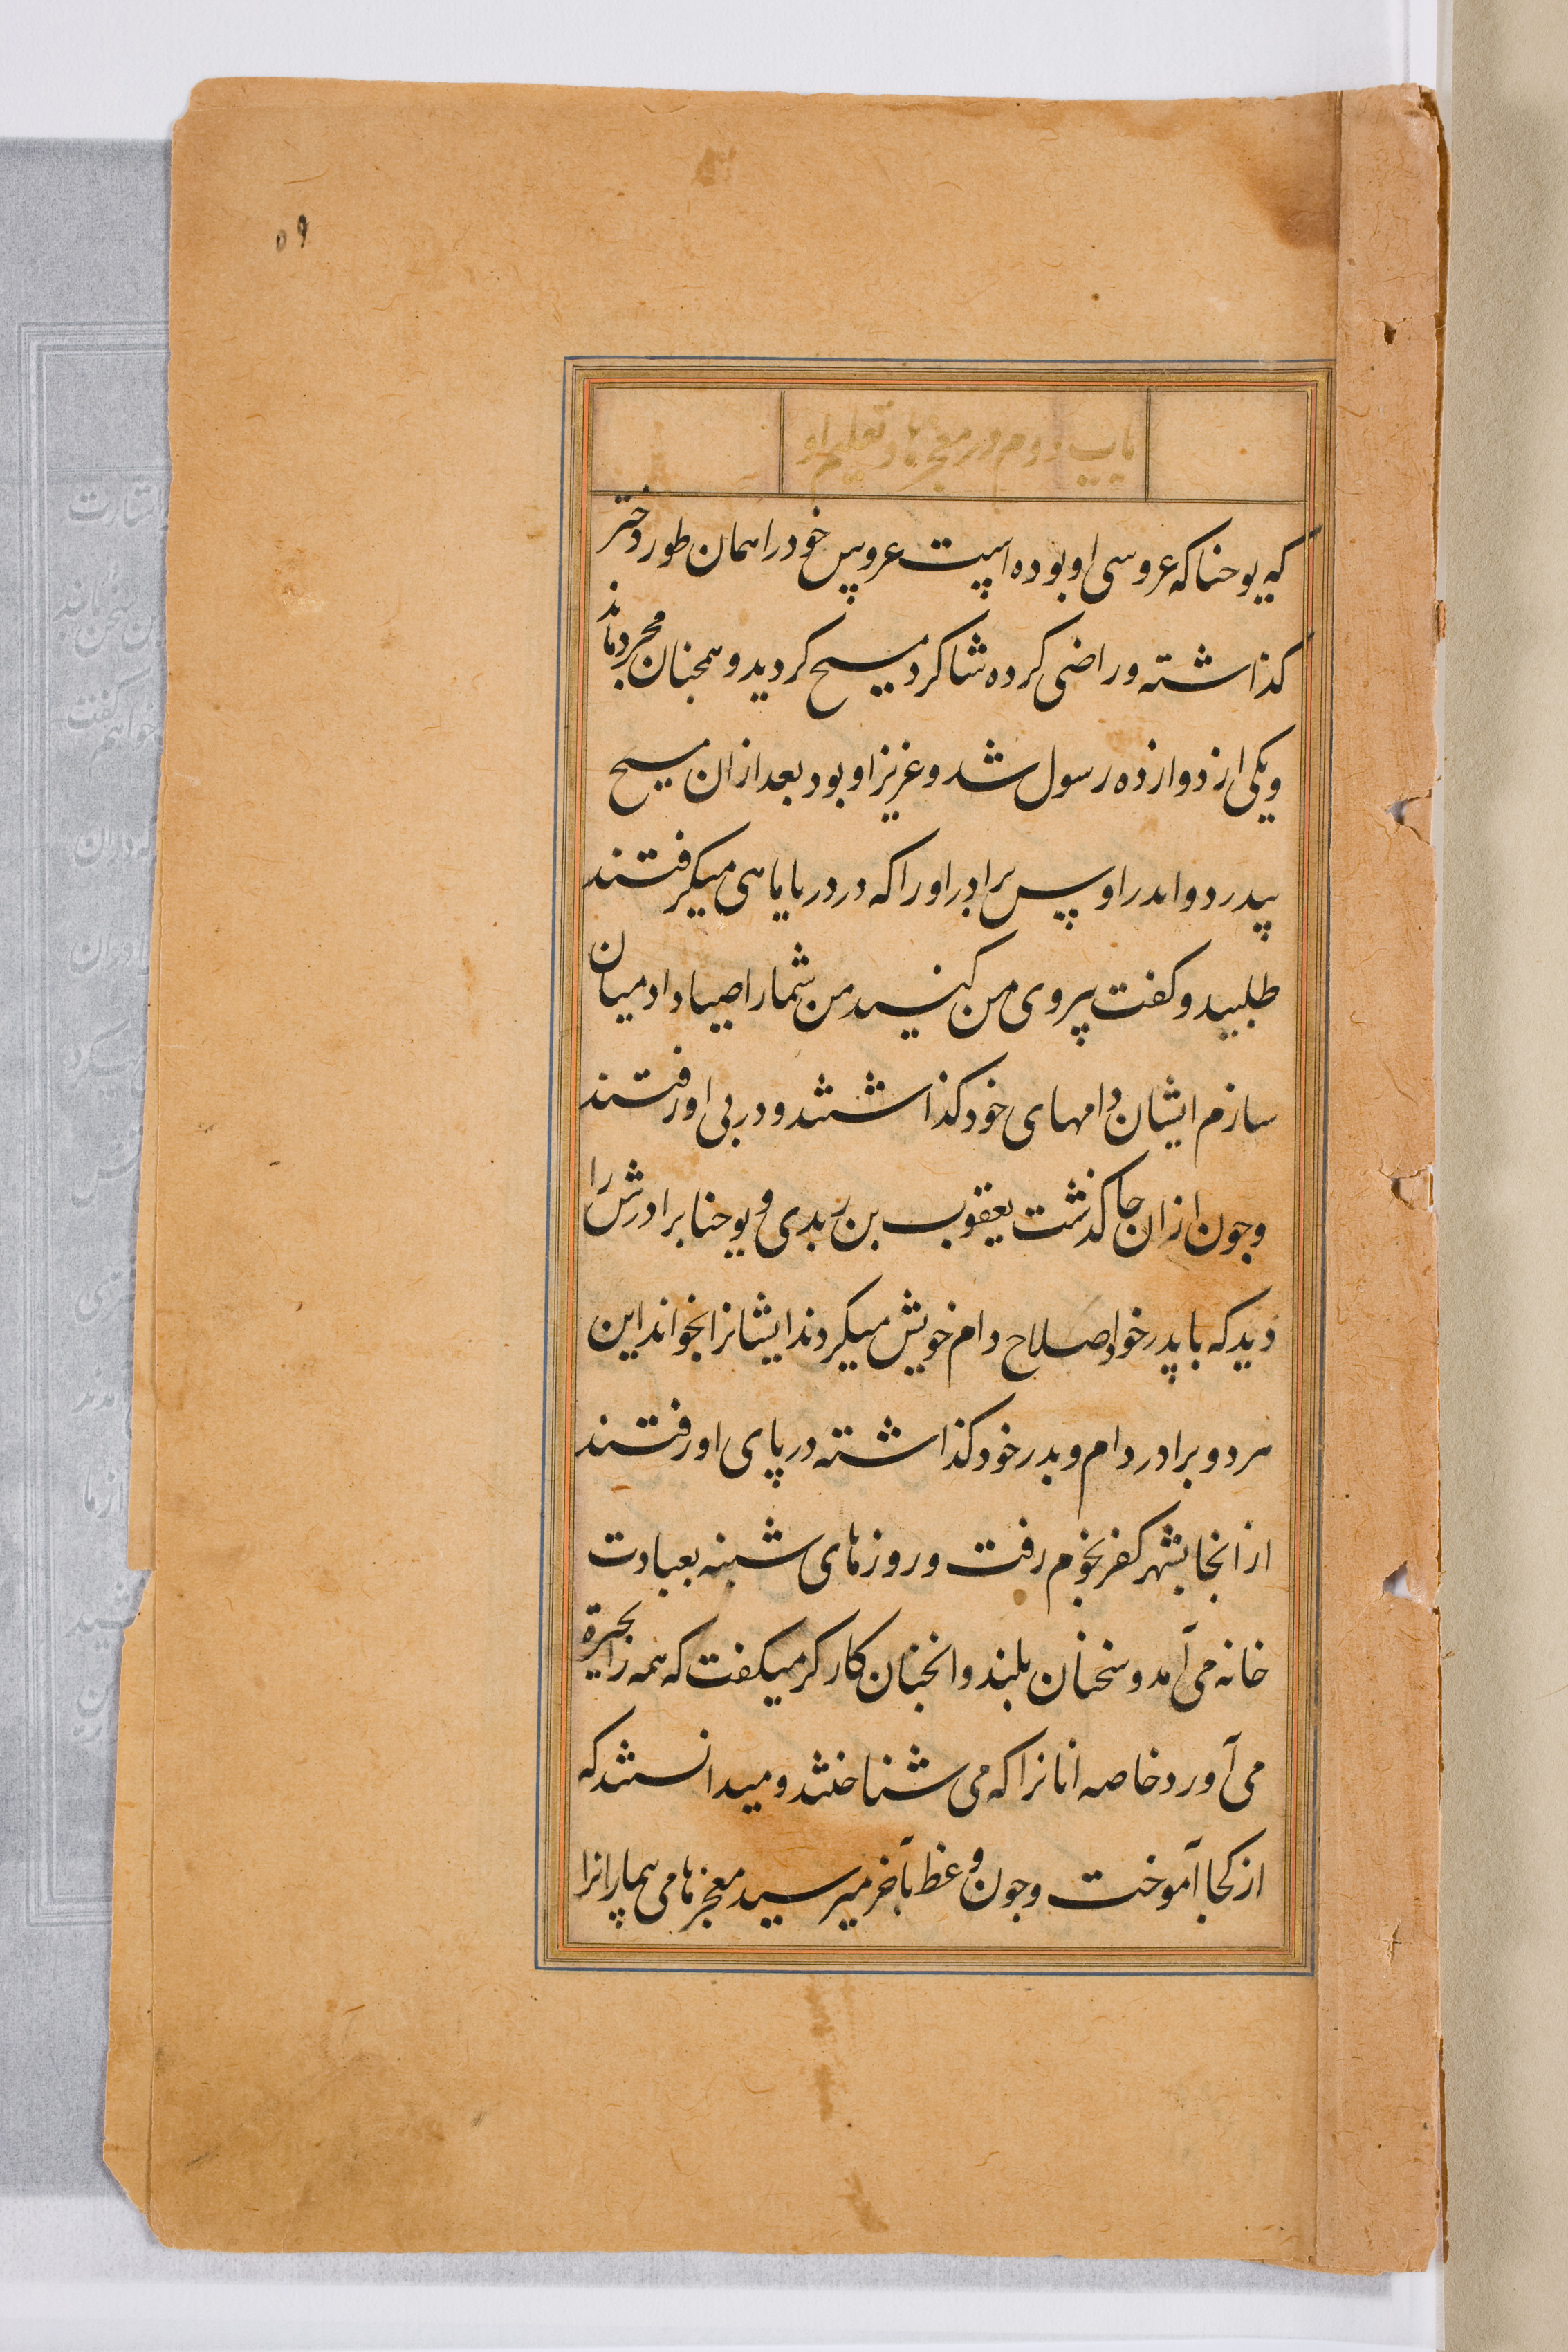 ۵۹
باب دوم در معجزها و تعلیم او
که یوحنا که عروسی او بوده است عروس خود را همان طور دختر
کذاشته و راضی کرده شاکرد مسیح کردید و همجنان مجرد ماند
و یکی از دوازده رسول شد و عزیز او بود بعد ازان مسیح
پدرو اندراوس برادر او را که در دریا ماهی میکرفتند
طلبید و کفت پیروی من کنید من شما را صیاد ادمیان
سازم ایشان دامهای خود کذاشتند و در پی او رفتند
و جون ازان جا کذشت یعقوب بن زبدی و یوحنا برادرش را
دید که با پدر خود اصلاح دام خویش میکردند ایشانرا بخواند این
هر دو برادر دام و بدر خود کذاشته در پای او رفتند
از انجا بشهر کفرنخوم رفت و روزهای شبنه بعبادت
خانه می آمد و سخنان بلند و انجنان کارکر میکفت که همه را بحیرة
می آورد خاصه انانرا که می شناختند و میدانستند که
از کجا آموخت و جون وعظ بآخر میرسید معجزها می بیمارانرا